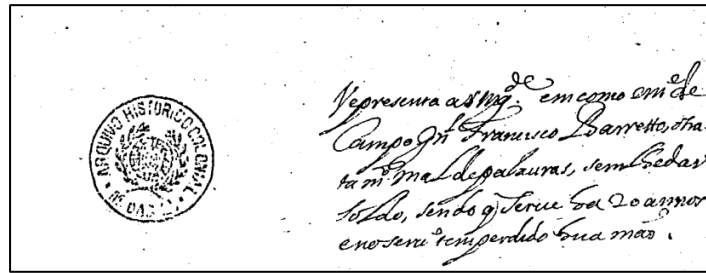 ARQUIVO HISTORICO COLONIAL
Representa a V Mg.de em como o m.e de
Campo G.l Francisco Barretto, o tra
ta m.to mal de palauras, sem lhe dar
soldo, sendo q̃ serue ha 20 annos
e no seru.o tem perdido hũa mão.